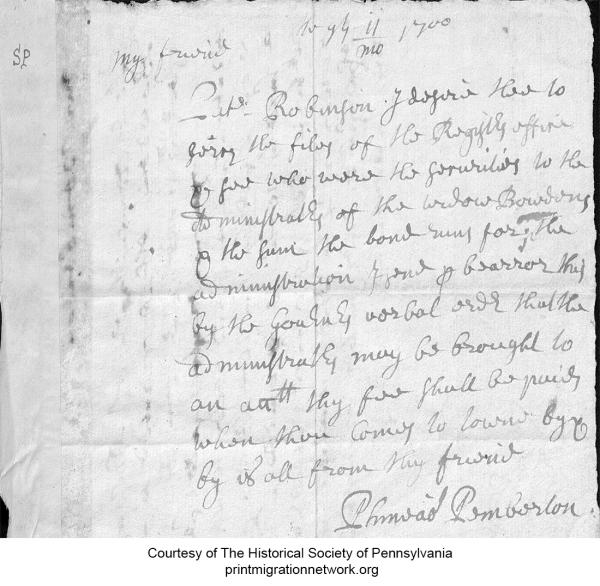 SP
11/mo 1700
my friend
Patr: Robinson. I desire thee to
serch the files of the Registrs office
& see who were the securities to the
Administrators of the widow Bowdens
& the sum the bond runs for, the
administration I send p bearror this
by the Governrs verbal order that the
administrators may be brought to
an acctt thy fee shall be paid
when thou comes to towne by
by is all from thy friend
Phineas Pemberton.
Courtesy of The Historical Society of Pennsylvania
printmigrationnetwork.org